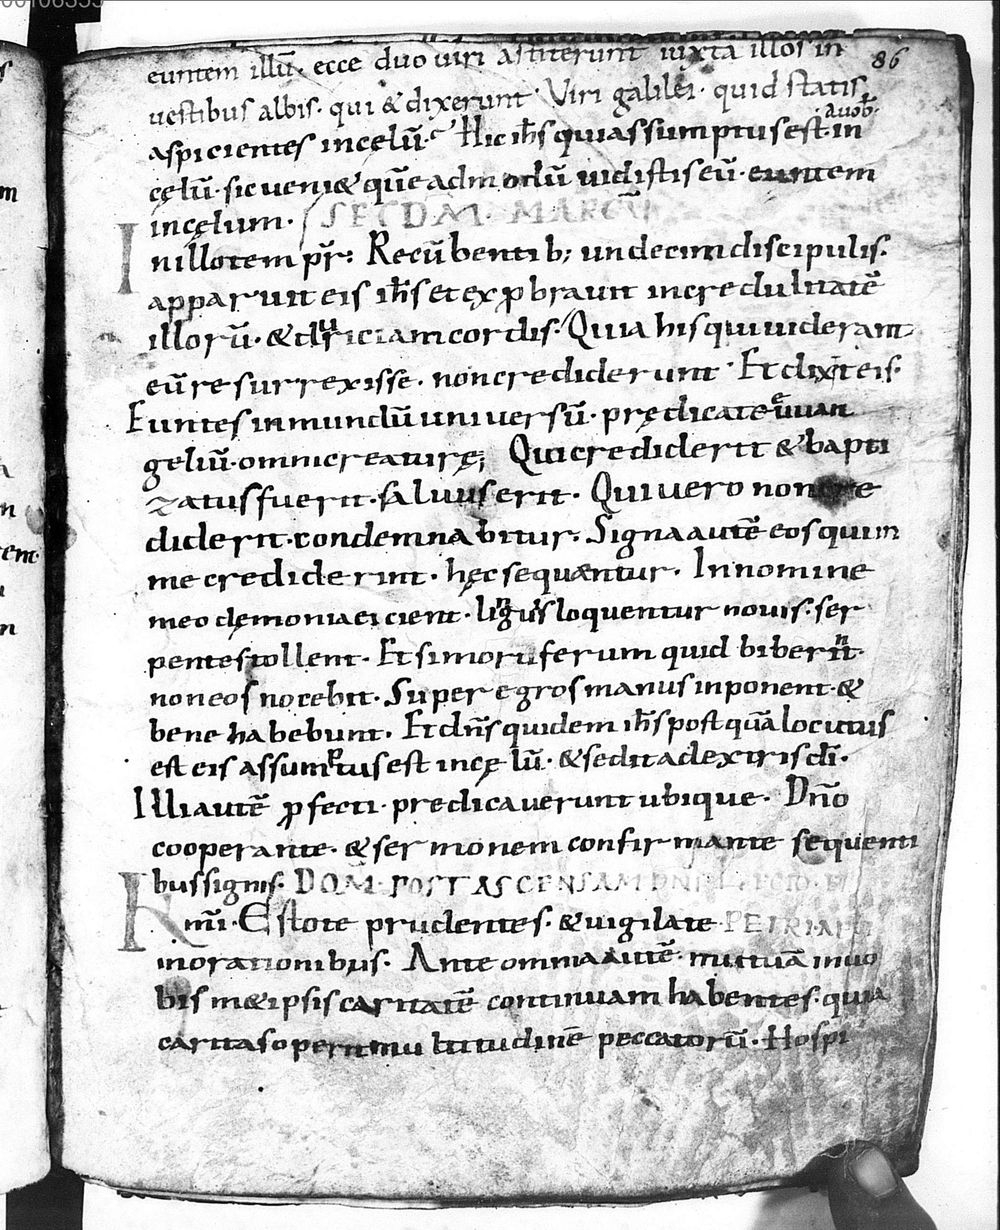 86
euntem illū· ecce duo uiri astiterunt iuxta illos in
uestibus albis· qui & dixerunt· Viri galilei· quid statis
aspicientes incęlū· Hic ih̄s quiassumptusest auob̄· in
cęlū· sic ueni& quēadmodū uidistis eū· euntem
incęlum· SECDM· MARCŪ
Inillotempr̄: Recūbentib; undecimdiscipulis·
apparuit eis ih̄s et exꝓbrauit incredulitatē
illorū· & duriciamcordis· Quia hisquiuiderant
eū resurrexisse· noncrediderunt· Et dix̄ eis·
Euntes inmundū uniuersū· prędicate euuan
geliū· omnicreaturę; Quicrediderit & bapti
zatusfuerit· saluuserit· Quiuero noncre
diderit· condemnabitur· Signa autē eosquiin
me crediderint· hęcsequentur· Innomine
meo dęmoniaeicient· linguisloquentur nouis· ser
pentestollent· Etsimortiferum quid biberint·
noneos nocebit· Super egrosmanus inponent· &
bene habebunt· Et dn̄s quidem ih̄s postquā locutus
est eis assumptusest incęlū· & sedit adextris dī·
Illi autē ꝓfecti· predicauerunt ubique· Dn̄o
cooperante· & sermonem confirmante sequenti
bussignis· DOM· POST ASCENSAM DNI LECTIO·
Kmī· Estote prudentes· & uigilate PETRI· AP
inorationibus· Ante omnia autē· mutuā inuo
bism&ipsis caritatē continuam habentes· quia
caritasoperit multitudinē peccatorū· Hospi